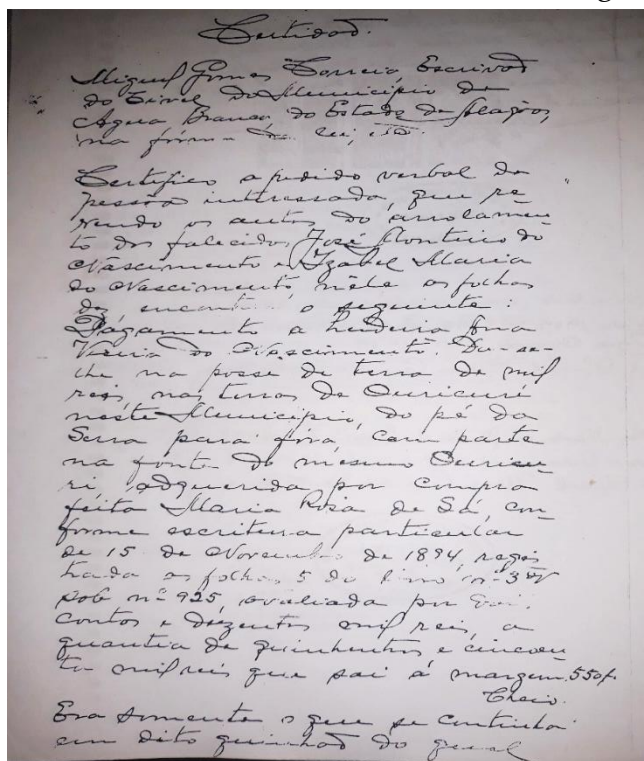 Certidão.
Miguel Gomes Correia, Escrivão
do Civel do Municipio de
Agua Branca, do Estado de Alagôas,
na fórma da lei,
Certifico a pedido verbal de
pessôa interessada, que re-
vendo os autos do arrolamen-
to dos falecidos, José Monteiro do
Nascimento e Izabel Maria
do Nascimento, nêle as folhas
dez encontrei o seguinte:
Pagamento a herdeira Ana
Vieira do Nascimento. Da-se-
lhe na posse de terra de mil
reis, nas terras de Ouricuri
neste Municipio, do pé da
Serra para fóra, com parte
na fonte do mesmo Ouricu-
ri, adquerida por compra
feita Maria Rosa de Sá, con-
forme escritura particular
de 15 de Novembro de 1894, regis
trada as folhas 5 do livro nº 3
sob nº 925, avaliada por
contos e duzentos mil reis, a
quantia de quinhentos e cincoen-
ta mil reis que sai á margem. 550
Era somente o que se continha
em dito quinhão do qual